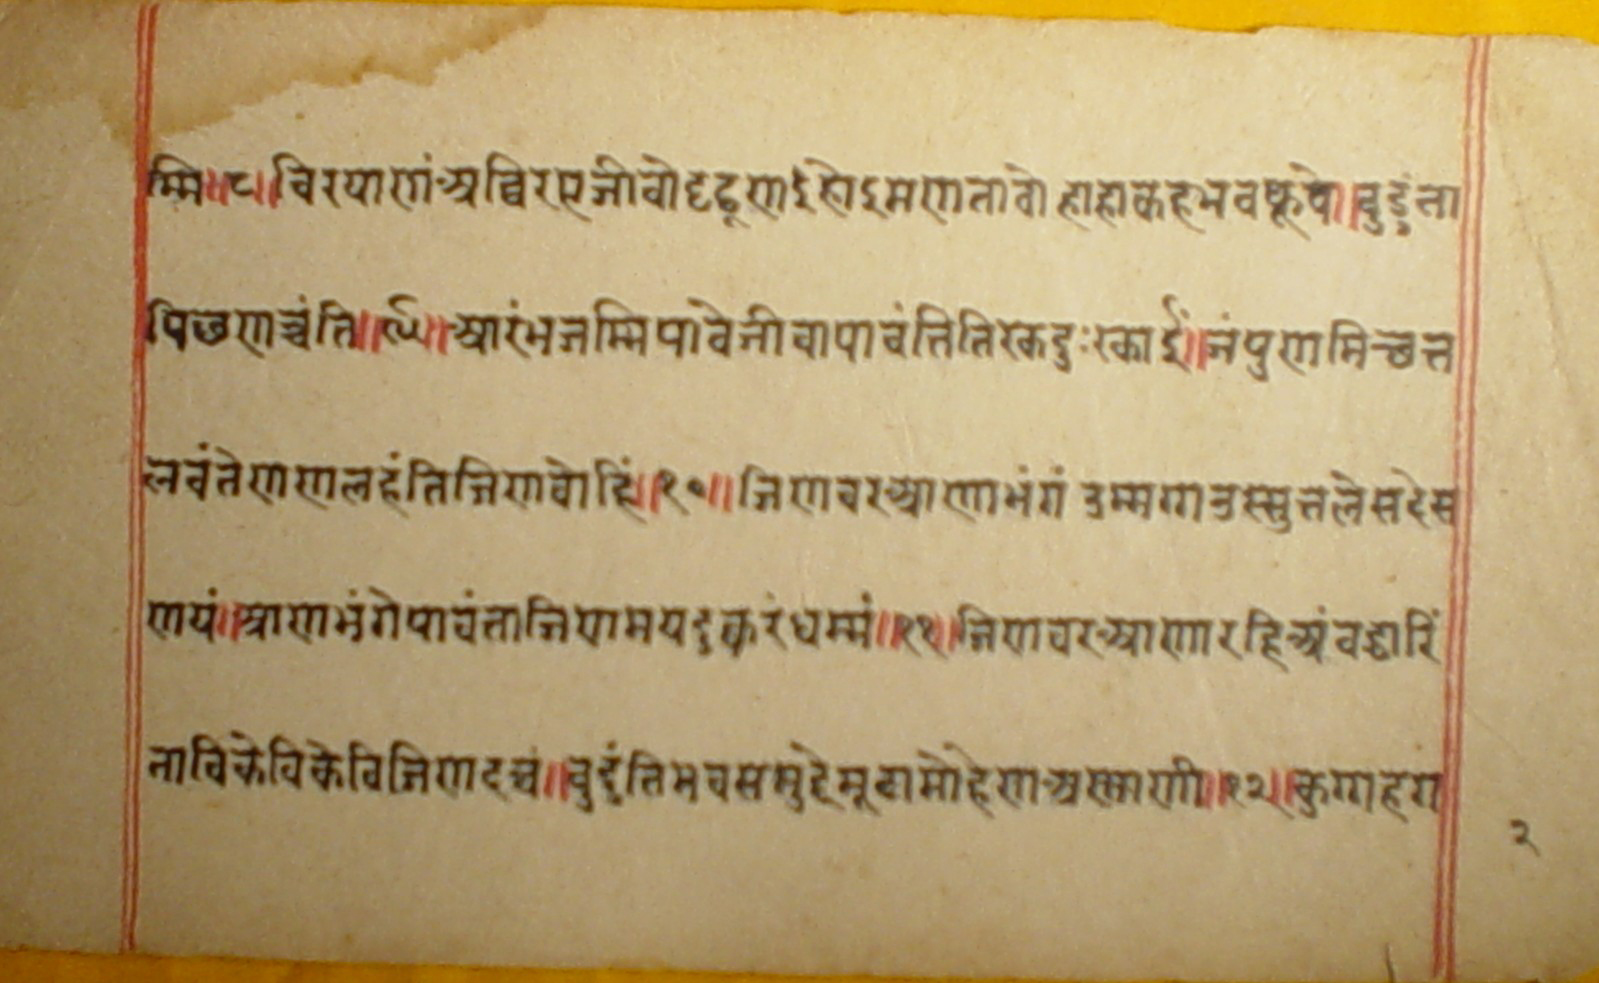 म्मि॥८॥विरयाणंअविरएजीवोदट्ठूणाइहोइमणतावोहाहाकहभवकूवे॥बुडुंता
पिछणच्चंति॥९॥आरंभजम्मिपावेजीवापावंतितिरकदुःरकाइं॥जंपुणमिच्छत्त
लवंतेणणलहंतिजिणबोहिं॥१०॥जिणवरआणाभंगं उम्मग्गउस्सुत्तलेसदेस
णयं॥आणभंगेपावंताजिणमयदुक्करंधम्मं॥११॥जिणवरआणारहिअंवड्ढारिं
ताविकेविकेविजिणदव्वं॥बुडुंतिभवसमुद्देमूढामोहेणअस्माणी॥१२॥कुग्गहग
२